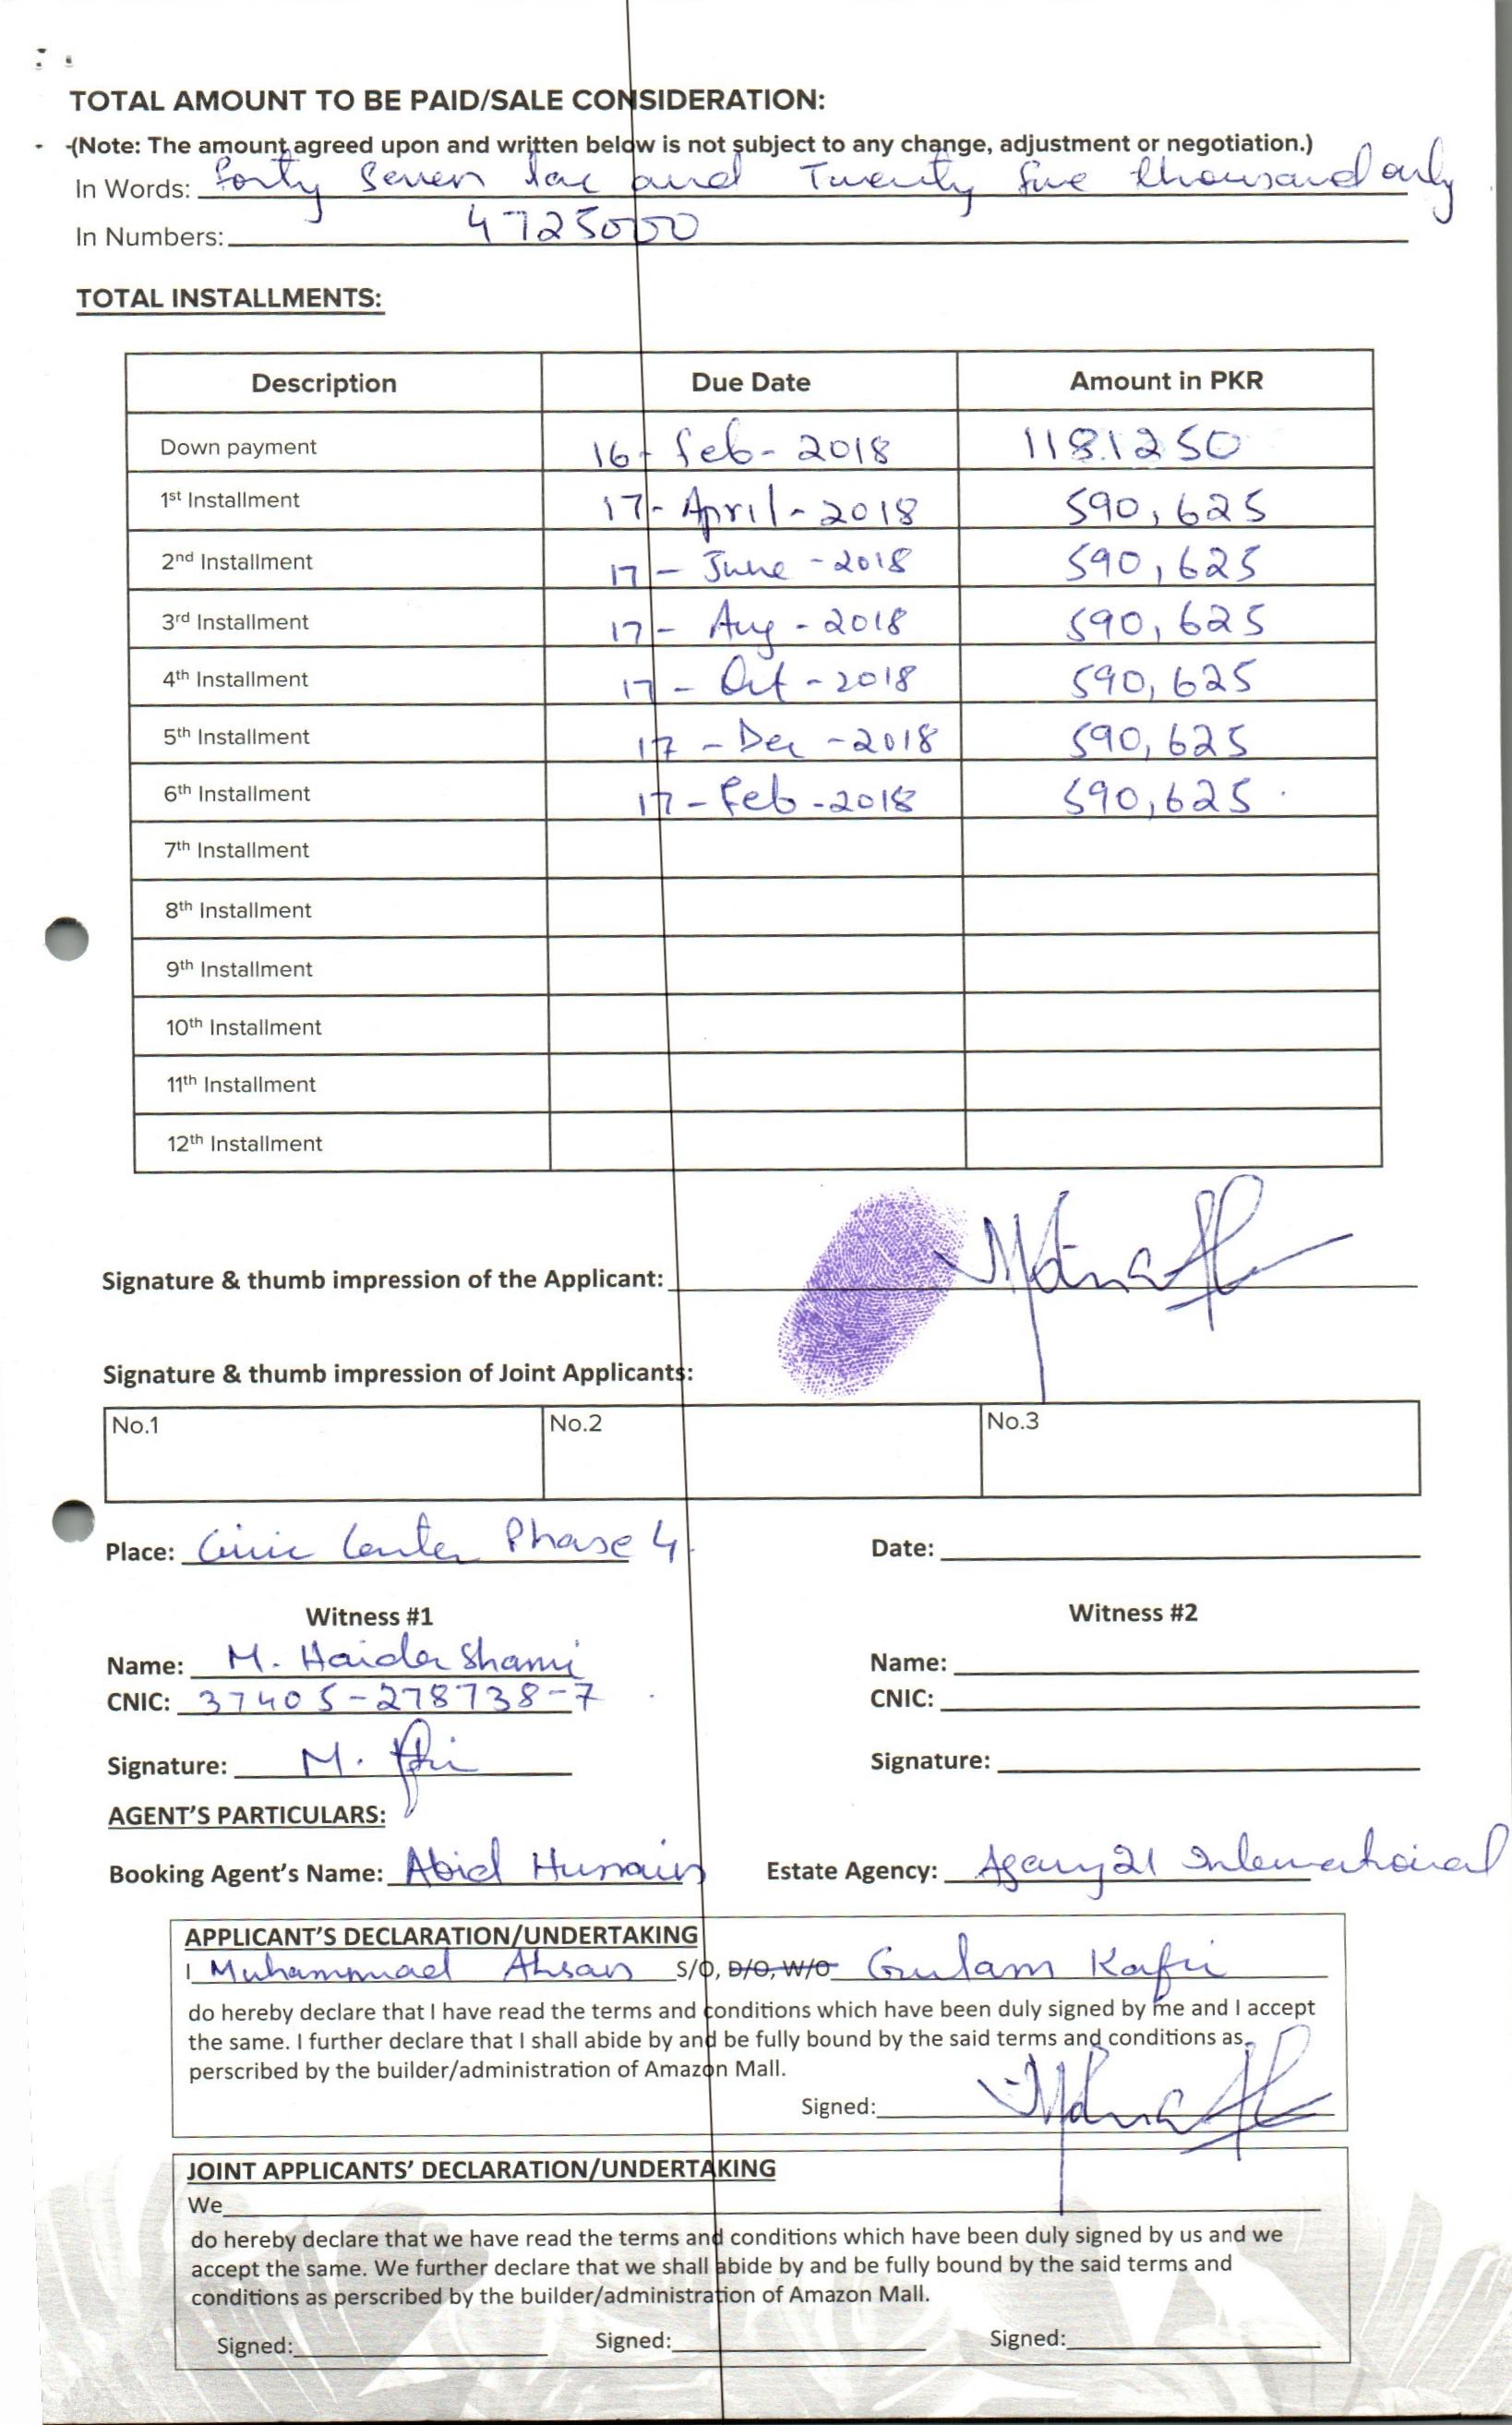 TOTAL AMOUNT TO BE PAID/SALE CONSIDERATION:
(Note: The amount agreed upon and written below is not subject to any change, adjustment or negotiation.)
In Words: Forty Seven lac and Twenty five thousand only
In Numbers: 4725000
TOTAL INSTALLMENTS:
Description Due Date Amount in PKR
Down payment 16 - Feb - 2018 1181250
1st Installment 17 - April - 2018 590,625
2nd Installment 17 - June - 2018 590,625
3rd Installment 17 - Aug - 2018 590,625
4th Installment 17 - Oct - 2018 590,625
5th Installment 17 - Dec - 2018 590,625
6th Installment 17 - Feb - 2018 590,625
7th Installment
8th Installment
9th Installment
10th Installment
11th Installment
12th Installment
Signature & thumb impression of the Applicant:
Signature & thumb impression of Joint Applicants:
No.1 No.2 No.3
Place: Civic Center Phase 4 Date:
Witness #1 Witness #2
Name: M. Haider Shami Name:
CNIC: 37405-278738-7 CNIC:
Signature: M. Signature:
AGENT'S PARTICULARS:
Booking Agent's Name: Abid Hussain Estate Agency: Agency 21 International
APPLICANT'S DECLARATION/UNDERTAKING
I Muhammad Ahsan S/O, D/O, W/O Gulam
do hereby declare that I have read the terms and conditions which have been duly signed by me and I accept
the same. I further declare that I shall abide by and be fully bound by the said terms and conditions as
perscribed by the builder/administration of Amazon Mall.
Signed:
JOINT APPLICANTS' DECLARATION/UNDERTAKING
We
do hereby declare that we have read the terms and conditions which have been duly signed by us and we
accept the same. We further declare that we shall abide by and be fully bound by the said terms and
conditions as perscribed by the builder/administration of Amazon Mall.
Signed: Signed: Signed: